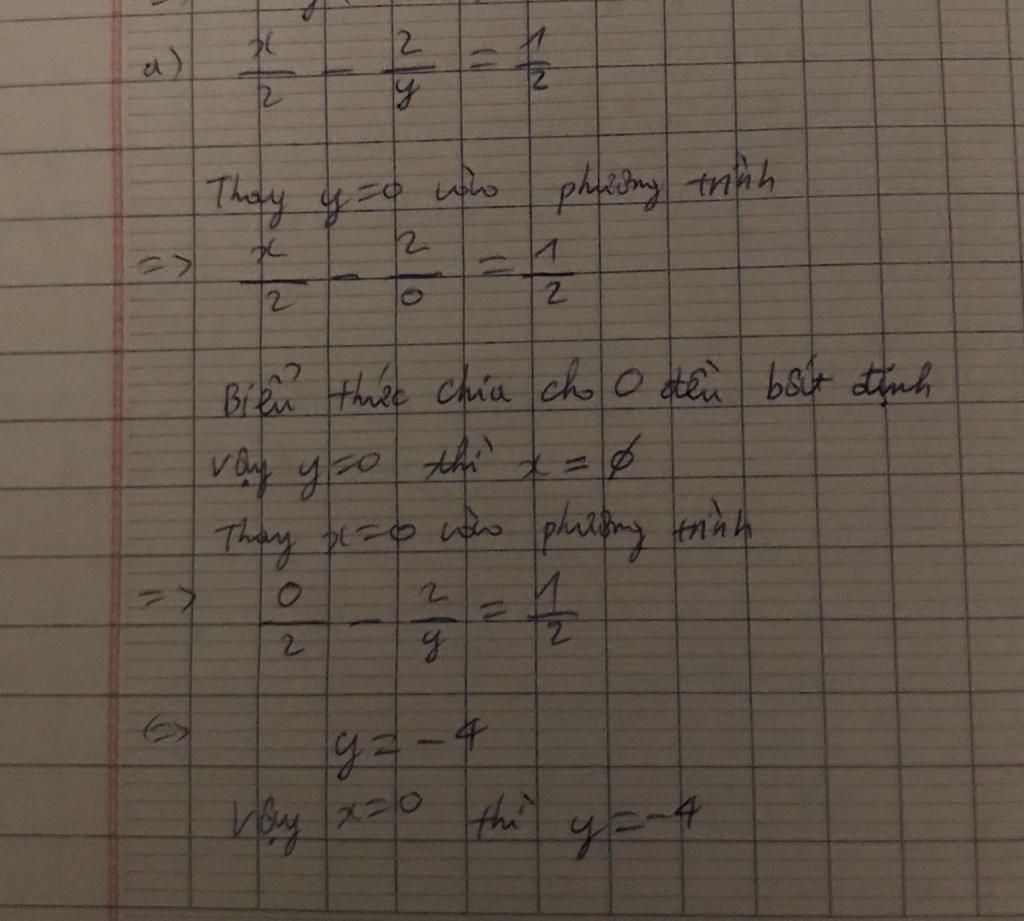 a) x/2 - 2/y = 1/2
Thay y=0 vào phương trình
=> x/2 - 2/0 = 1/2
Biểu thức chia cho 0 đều bất định
Vậy y=0 thì x = ∅
Thay x=0 vào phương trình
=> 0/2 - 2/y = 1/2
<=> y = -4
Vậy x=0 thì y=-4